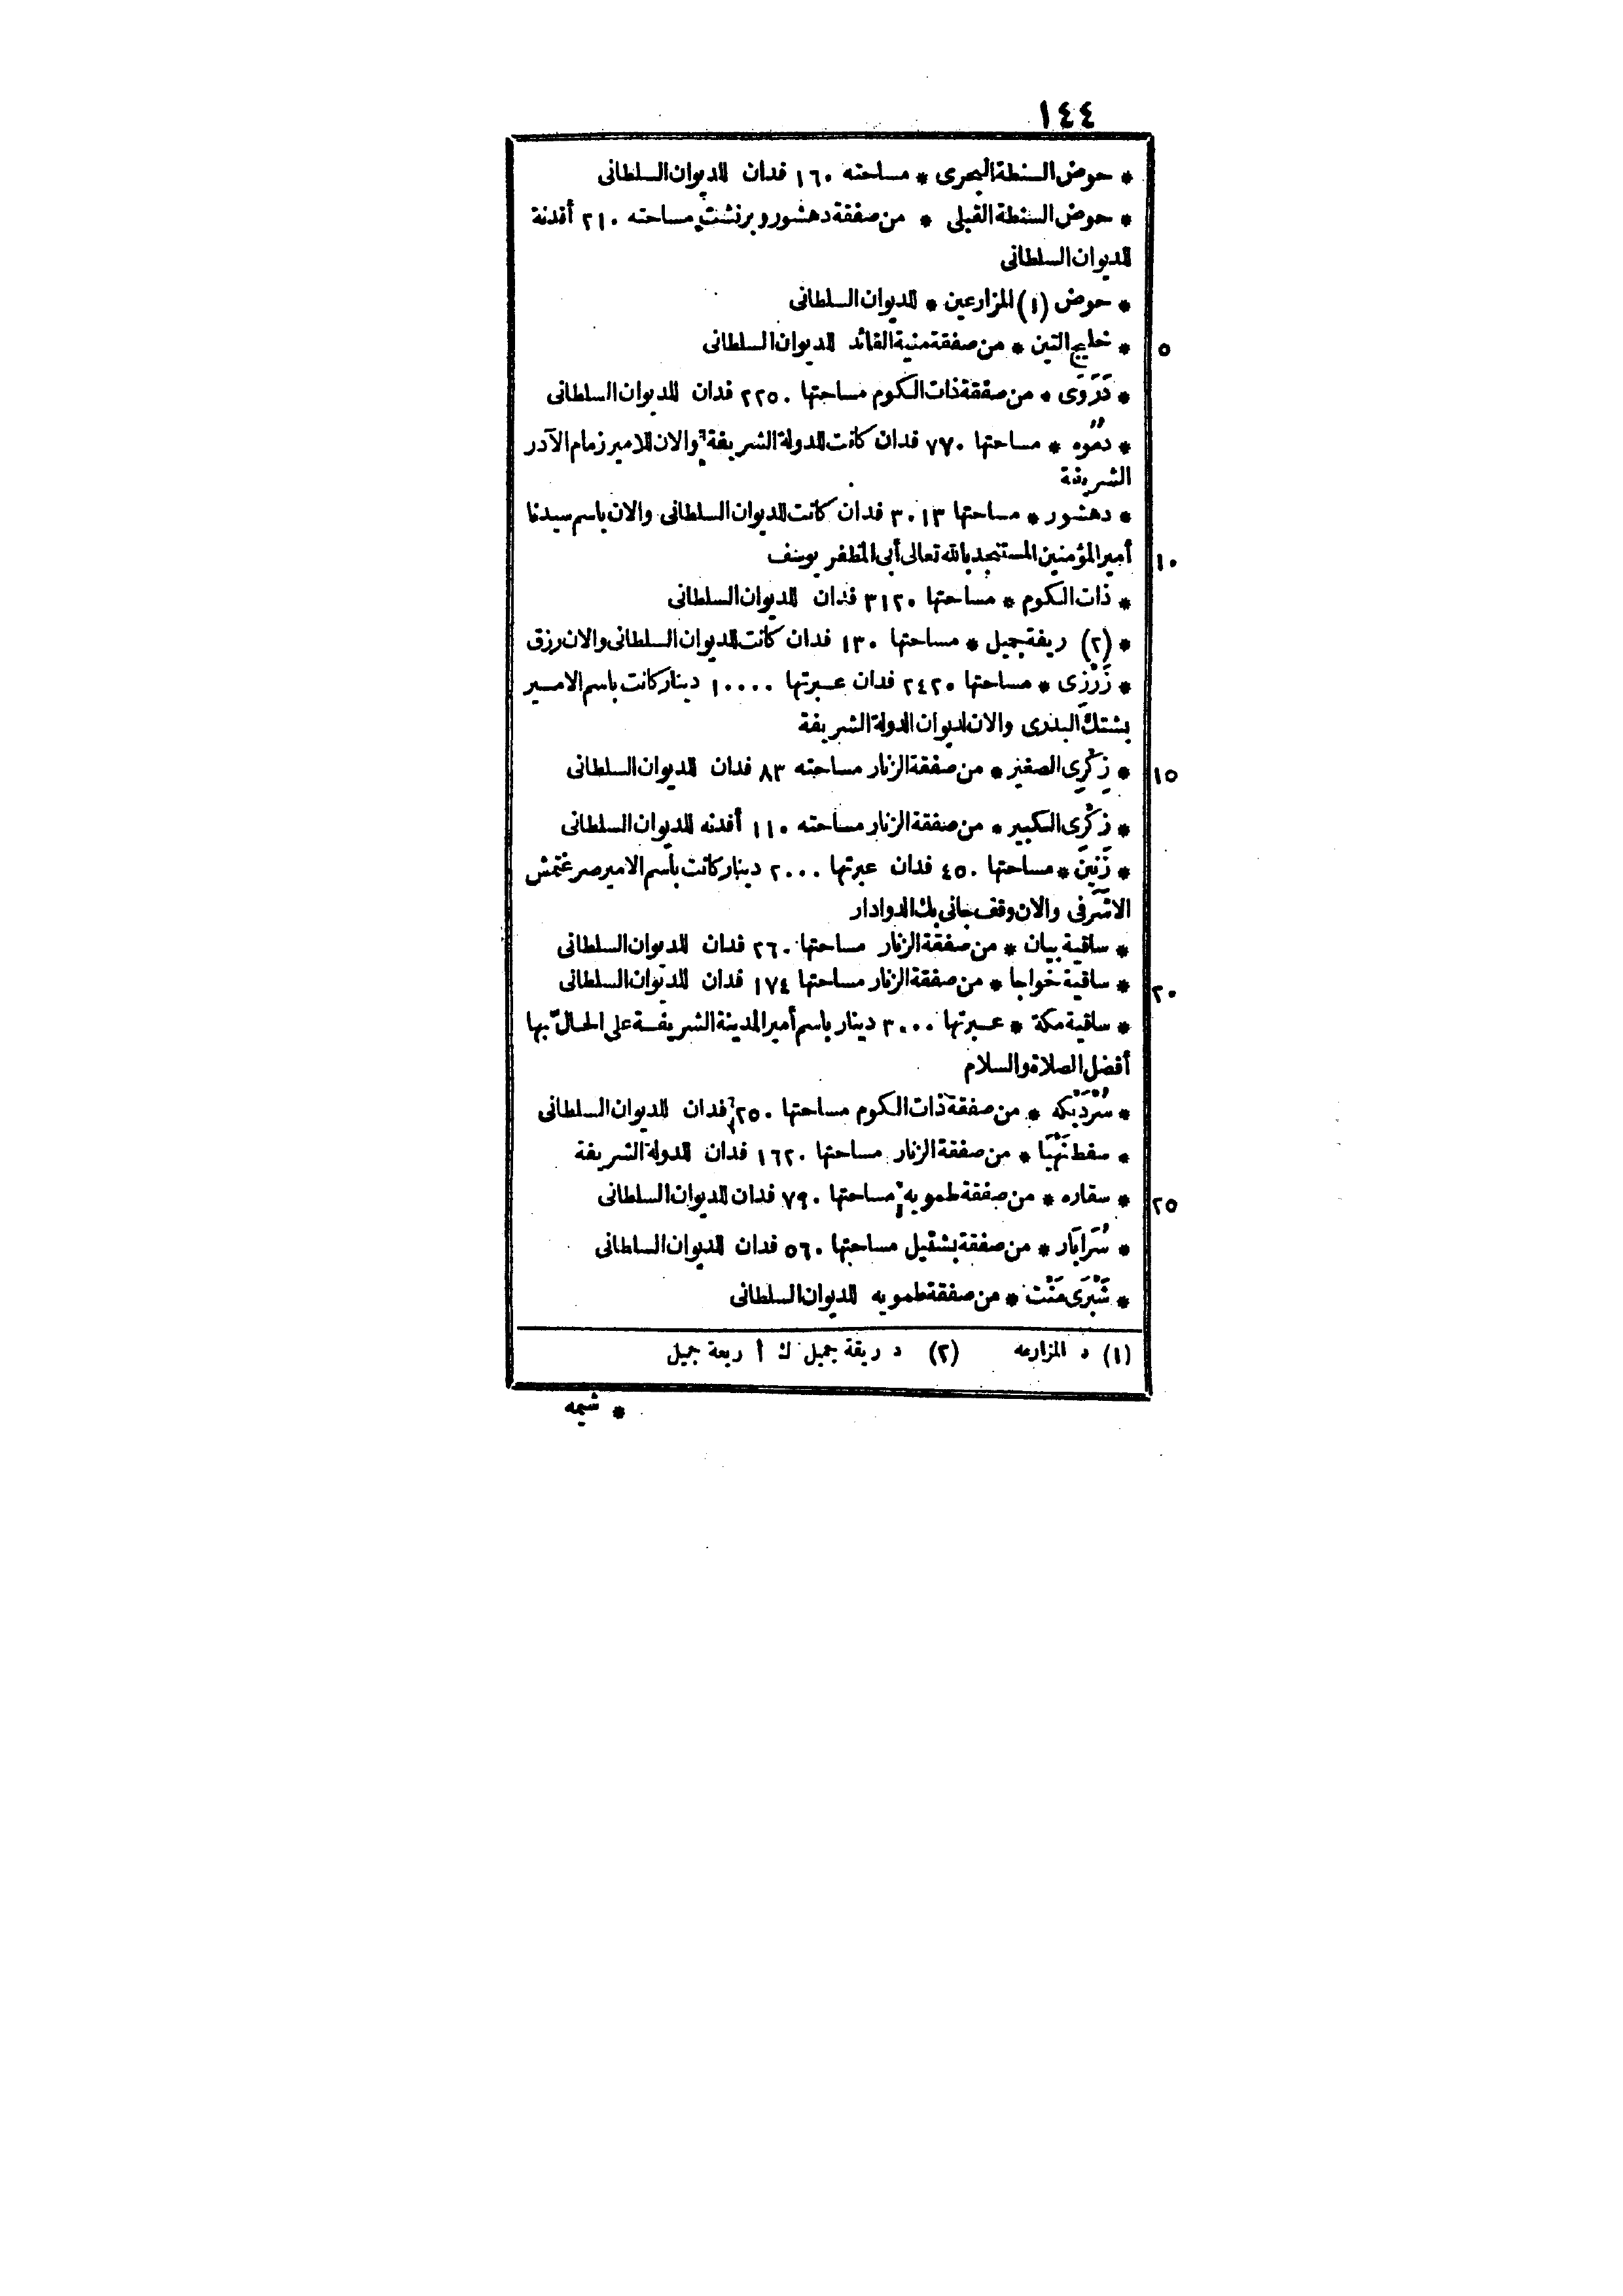 ١٤٤
* حوض السنطة البحرى * مساحته ١٦٠ فدان للديوان السلطانى
* حوض السنطة القبلى * من صفقة دهشور وبرنشت مساحته ٢١٠ أفدنة
للديوان السلطانى
* حوض (١) المزارعين * للديوان السلطانى
* خليج التين * من صفقة منية القائد للديوان السلطانى ٥
* دَرَوَى * من صفقة ذات الكوم مساحتها ٢٢٥٠ فدان للديوان السلطانى
* دمُوُه * مساحتها ٧٧٠ فدان كانت للدولة الشريفة والان للامير زمام الآدر
الشريفة
* دهشور * مساحتها ٣٠١٣ فدان كانت للديوان السلطانى والان باسم سيدنا
أمير المؤمنين المستنجد بالله تعالى أبى المظفر يوسف ١٠
* ذات الكوم * مساحتها ٣١٢٠ فدان للديوان السلطانى
* (٢) ريفة جميل * مساحتها ١٣٠ فدان كانت للديوان السلطانى والان رزق
* زَرْزِى * مساحتها ٢٤٢٠ فدان عبرتها ١٠٠٠٠ دينار كانت باسم الامير
بشتك البدرى والان لديوان الدولة الشريفة
* زِكْرِى الصغير * من صفقة الزنار مساحته ٨٣ فدان للديوان السلطانى ١٥
* زكْرى الكبير * من صفقة الزنار مساحته ١١٠ أفدنه للديوان السلطانى
* زَنين * مساحتها ٤٥٠ فدان عبرتها ٢٠٠٠ دينار كانت باسم الامير صرغتمش
الاشرفى والان وقف جانى بك الدوادار
* ساقية بيان * من صفقة الزنار مساحتها ٢٦٠ فدان للديوان السلطانى
* ساقية خواجا * من صفقة الزنار مساحتها ١٧٤ فدان للديوان السلطانى ٢٠
* ساقية مكة * عبرتها ٣٠٠٠ دينار باسم أمير المدينة الشريفة على الحالّ بها
أفضل الصلاة والسلام
* سُرْدَنْكه * من صفقة ذات الكوم مساحتها ٢٥٠ فدان للديوان السلطانى
* سفط نَهْيَا * من صفقة الزنار مساحتها ١٦٢٠ فدان للدولة الشريفة
* سقاره * من صفقة طمويه مساحتها ٧٩٠ فدان للديوان السلطانى ٢٥
* سُرَابَار * من صفقة بشتيل مساحتها ٥٦٠ فدان للديوان السلطانى
* شَبْرَى مَنْت * من صفقة طمويه للديوان السلطانى
(١) د المزارعه (٢) د ريقة جميل ك أ ربعة جميل
* شيمه